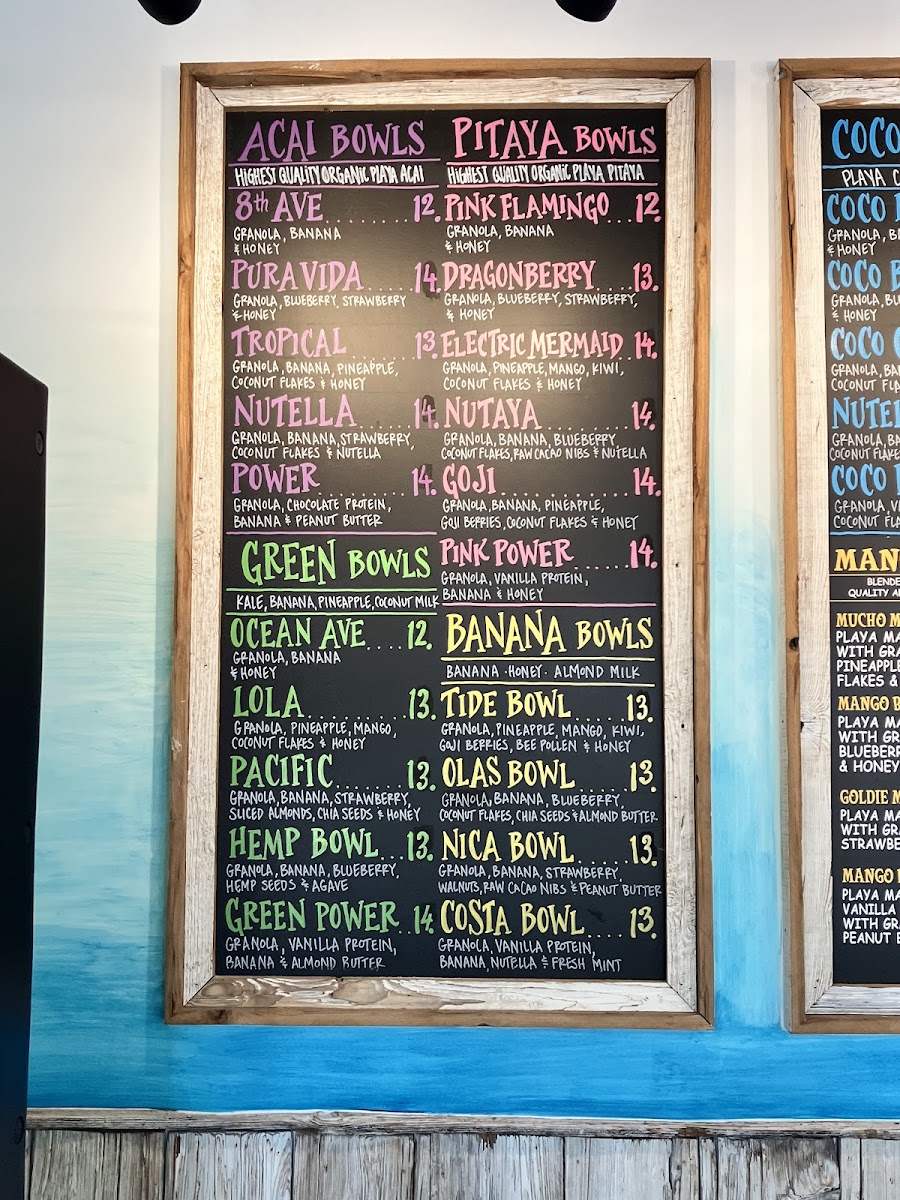 ACAI BOWLS
HIGHEST QUALITY ORGANIC PLAYA ACAI
8th AVE......12.
GRANOLA, BANANA
& HONEY
PURA VIDA......14.
GRANOLA, BLUEBERRY, STRAWBERRY
& HONEY
TROPICAL......13.
GRANOLA, BANANA, PINEAPPLE,
COCONUT FLAKES & HONEY
NUTELLA......14.
GRANOLA, BANANA, STRAWBERRY,
COCONUT FLAKES & NUTELLA
POWER......14.
GRANOLA, CHOCOLATE PROTEIN,
BANANA & PEANUT BUTTER
GREEN BOWLS
KALE, BANANA, PINEAPPLE, COCONUT MILK
OCEAN AVE.....12.
GRANOLA, BANANA
& HONEY
LOLA......13.
GRANOLA, PINEAPPLE, MANGO,
COCONUT FLAKES & HONEY
PACIFIC......13.
GRANOLA, BANANA, STRAWBERRY,
SLICED ALMONDS, CHIA SEEDS & HONEY
HEMP BOWL...13.
GRANOLA, BANANA, BLUEBERRY,
HEMP SEEDS & AGAVE
GREEN POWER 14.
GRANOLA, VANILLA PROTEIN,
BANANA & ALMOND BUTTER
PITAYA BOWLS
HIGHEST QUALITY ORGANIC PLAYA PITAYA
PINK FLAMINGO...12.
GRANOLA, BANANA
& HONEY
DRAGONBERRY....13.
GRANOLA, BLUEBERRY, STRAWBERRY,
& HONEY
ELECTRIC MERMAID..14.
GRANOLA, PINEAPPLE, MANGO, KIWI,
COCONUT FLAKES & HONEY
NUTAYA......14.
GRANOLA, BANANA, BLUEBERRY,
COCONUT FLAKES, RAW CACAO NIBS & NUTELLA
GOJI......14.
GRANOLA, BANANA, PINEAPPLE,
GOJI BERRIES, COCONUT FLAKES & HONEY
PINK POWER......14.
GRANOLA, VANILLA PROTEIN,
BANANA & HONEY
BANANA BOWLS
BANANA · HONEY · ALMOND MILK
TIDE BOWL......13.
GRANOLA, PINEAPPLE, MANGO, KIWI,
GOJI BERRIES, BEE POLLEN & HONEY
OLAS BOWL......13.
GRANOLA, BANANA, BLUEBERRY,
COCONUT FLAKES, CHIA SEEDS & ALMOND BUTTER
NICA BOWL......13.
GRANOLA, BANANA, STRAWBERRY,
WALNUTS, RAW CACAO NIBS & PEANUT BUTTER
COSTA BOWL......13.
GRANOLA, VANILLA PROTEIN,
BANANA, NUTELLA & FRESH MINT
COCO
PLAYA
COCO
GRANOLA,
& HONEY
COCO
GRANOLA,
& HONEY
COCO
GRANOLA,
COCONUT
GRANOLA,
COCONUT
COCO
GRANOLA,
COCONUT
QUALITY
MUCHO
PLAYA
WITH
PINEAPPLE
FLAKES &
MANGO
PLAYA
WITH
& HONEY
GOLDIE
PLAYA
WITH
MANGO
PLAYA
VANILLA
WITH
PEANUT